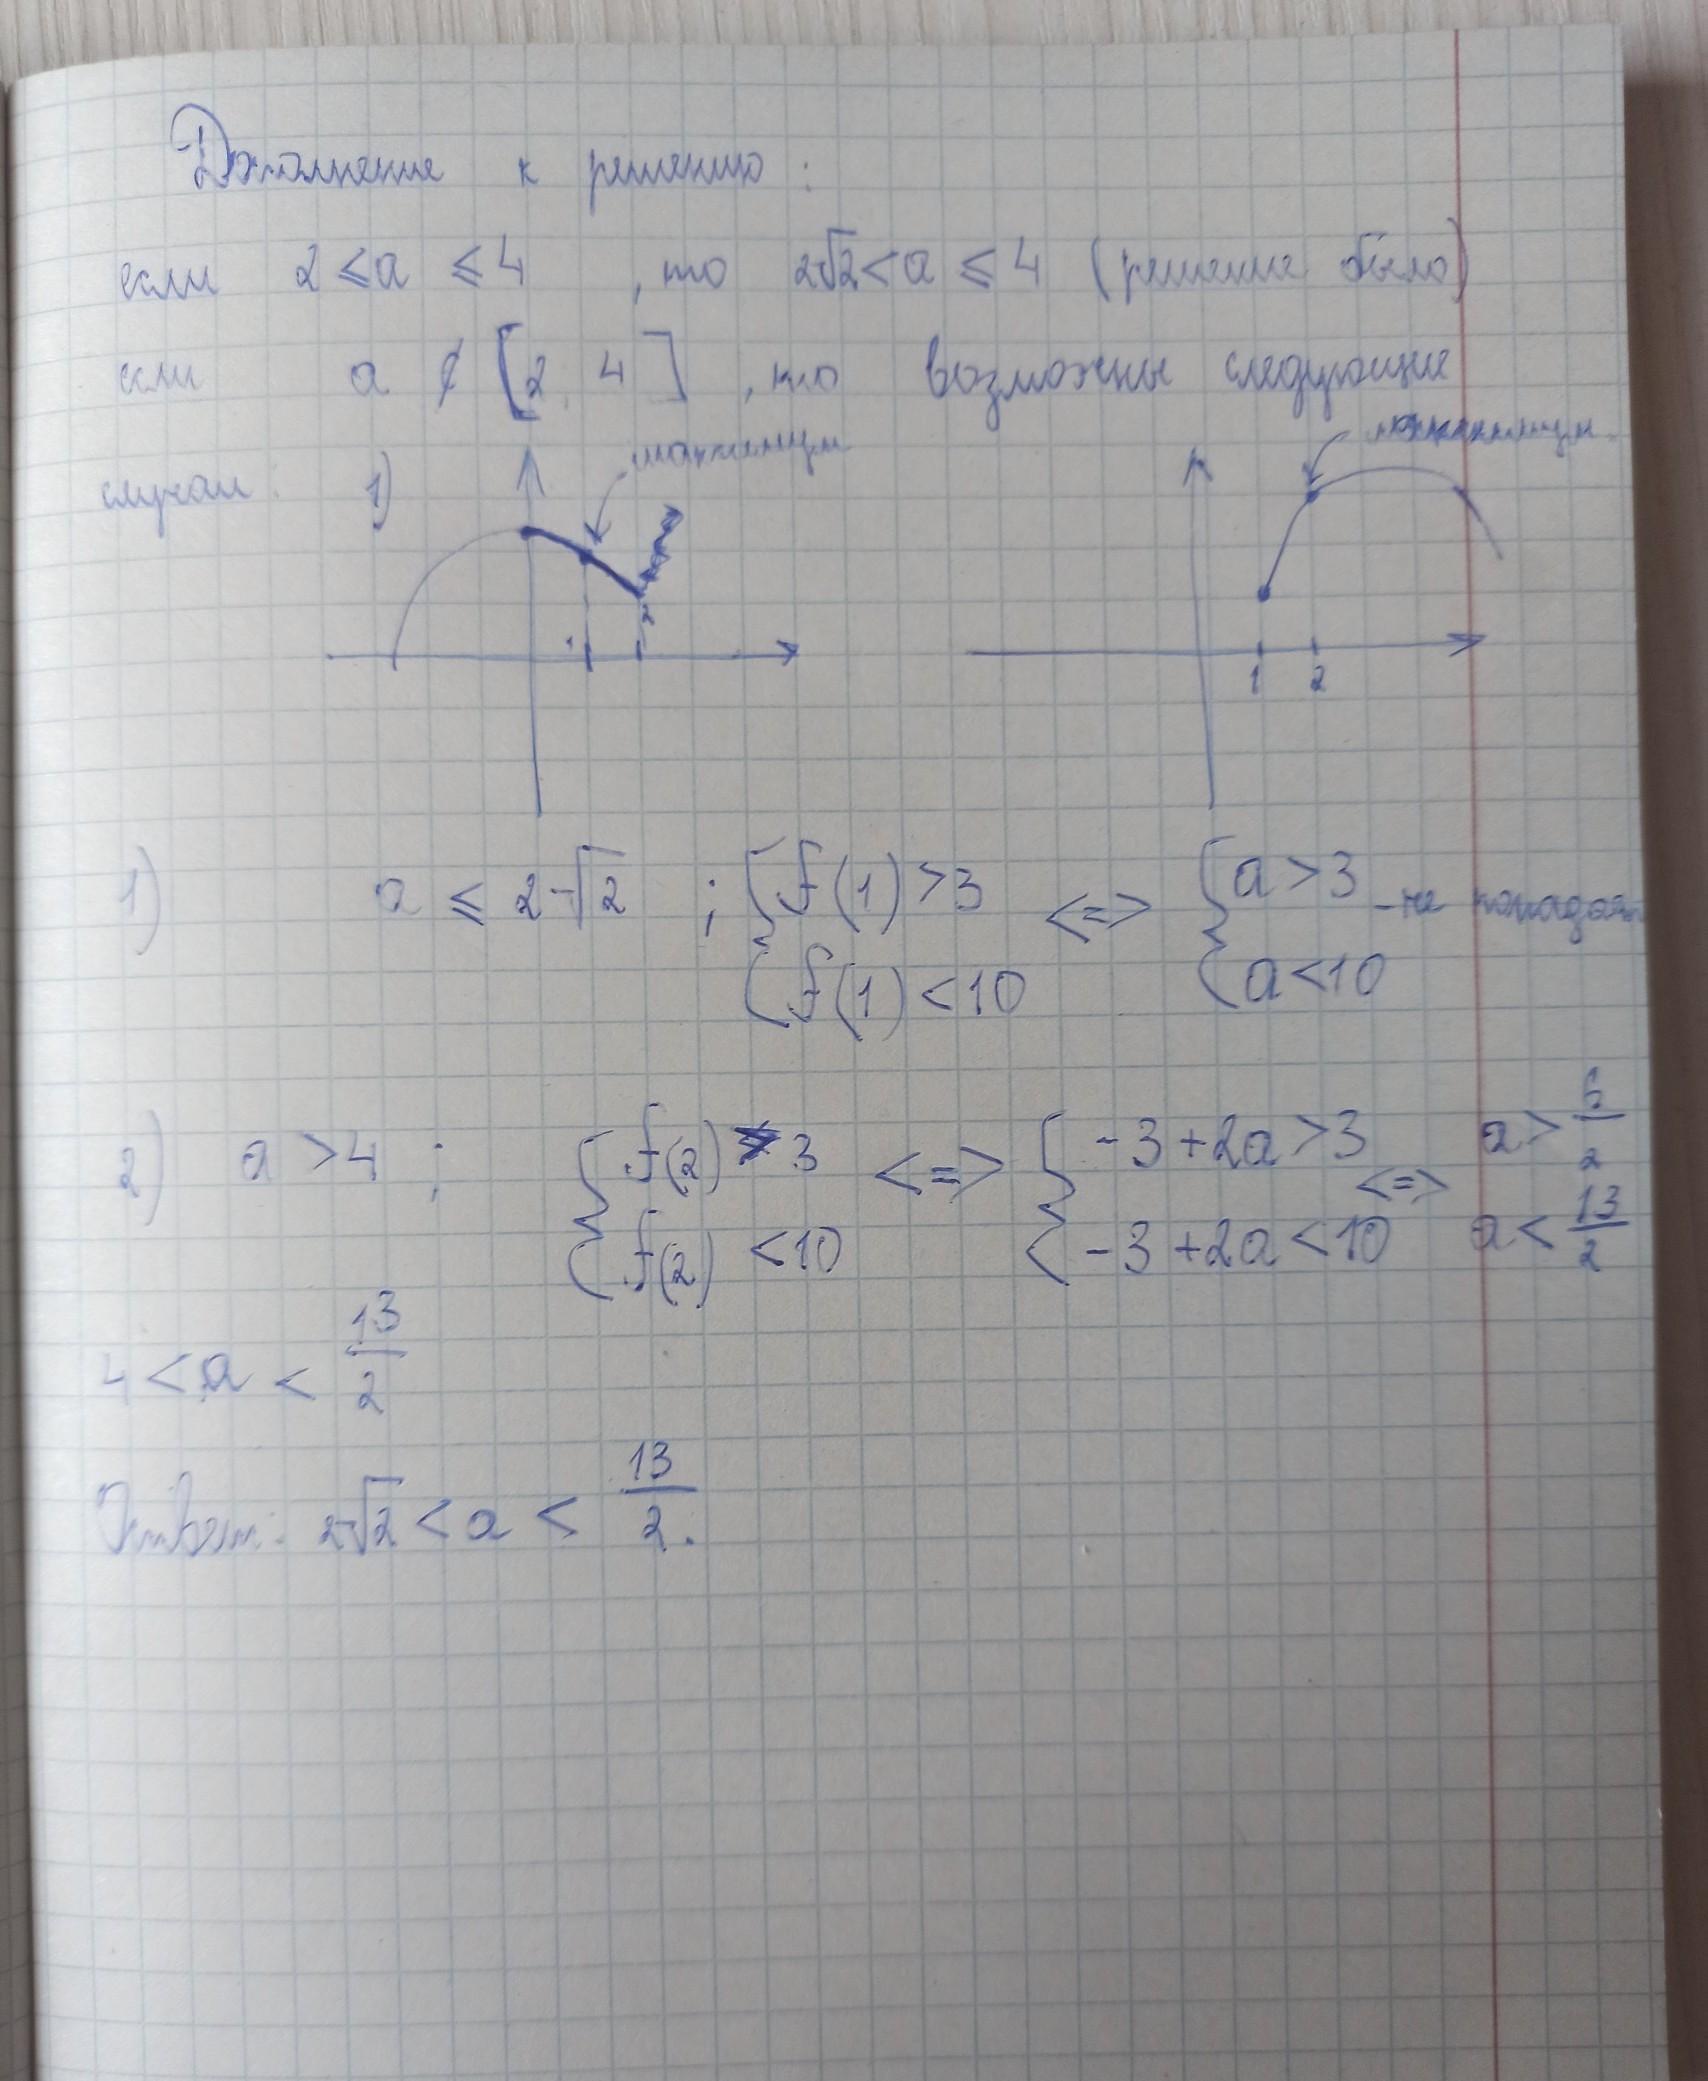 Дополнение к решению:
если 2 ⩽ a ⩽ 4, то 2√2 < a ⩽ 4 (решение было)
если a ∉ [2, 4], то возможны следующие
случаи: 1)
максимум
максимум
1 2
1 2
1) a ⩽ 2√2 ; { f(1) > 3 <=> { a > 3 - не попадает
{ f(1) < 10 { a < 10
2) a > 4 ; { f(2) > 3 <=> { -3 + 2a > 3 <=> a > 6/2
{ f(2) < 10 { -3 + 2a < 10 a < 13/2
4 < a < 13/2
Ответ: 2√2 < a < 13/2.